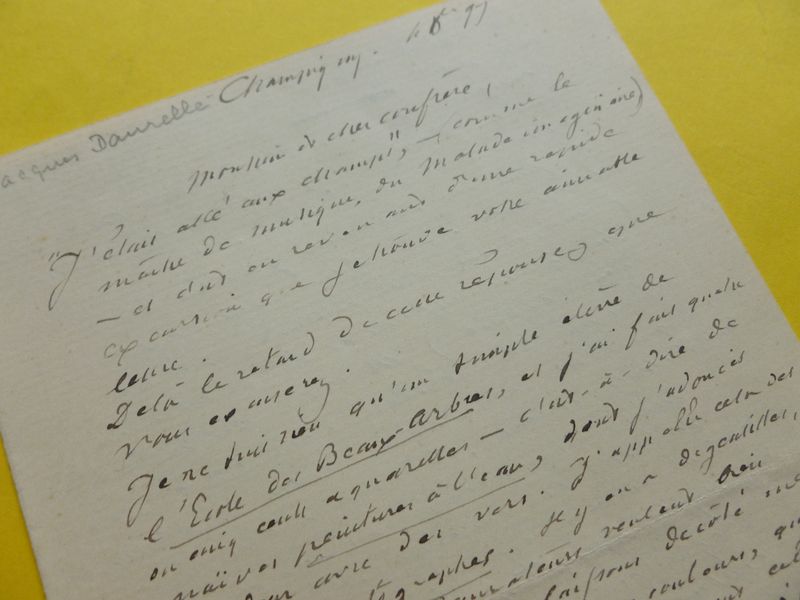 Jacques Daurelle
Champigny.
Monsieur & cher confrère,
"J'étais allé aux champs", — comme le
maître de musique du Malade imaginaire)
— et c'est en revenant d'une rapide
excursion que je trouve votre aimable
lettre.
De là le retard de cette réponse, que
vous excuserez.
Je ne suis rien qu'un simple élève de
l'École des Beaux-Arbres, et j'ai fait quatre
ou cinq cents aquarelles — c'est-à-dire de
naïves peintures à l'eau, dont j'adoucis
avec des vers. J'appelle cela des
Il y en a de gentilles,
veulent bien
laissons de côté
couleurs,